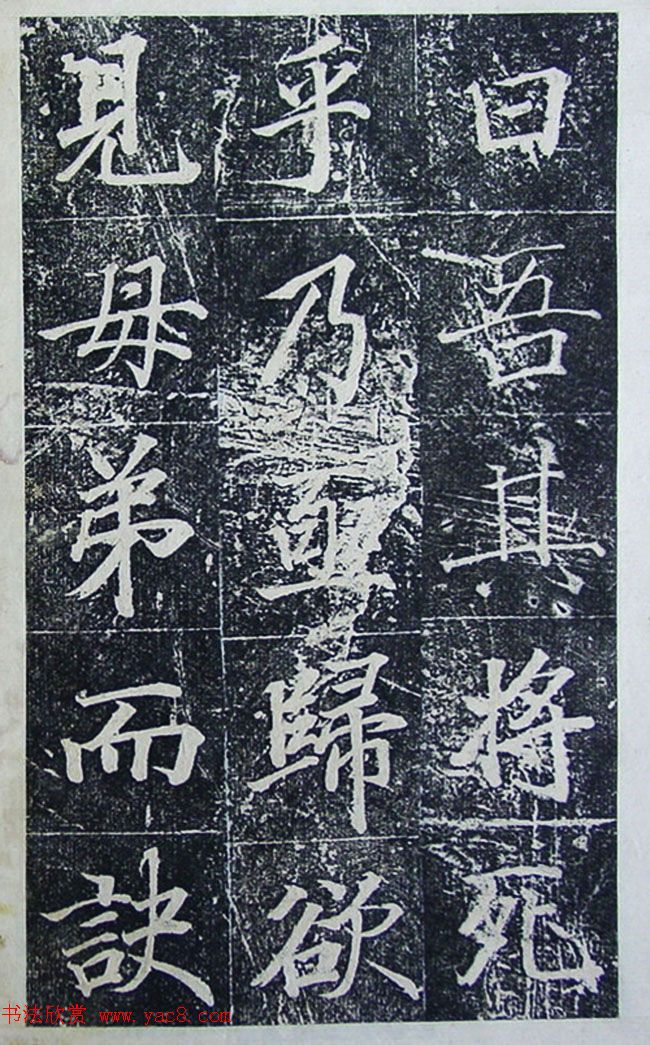 曰吾其將死
乎乃亟歸欲
見母弟而訣
书法欣赏 www.yac8.com